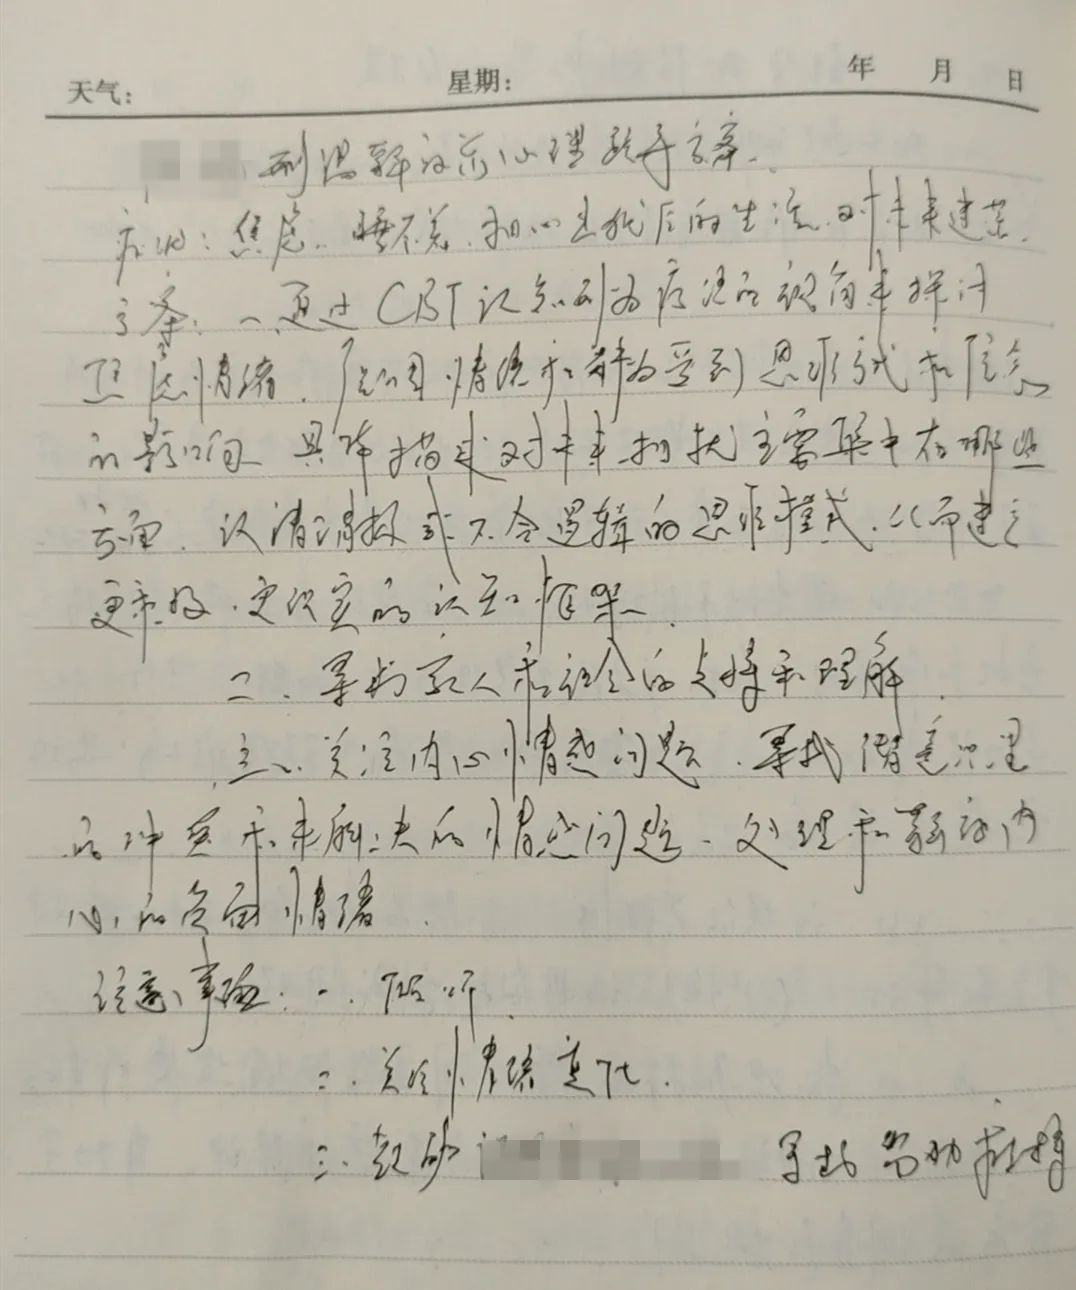 年 月 日
天气: 星期:
刑满释放前心理疏导方案.
症状: 焦虑. 睡不着. 担心出狱后的生活. 对未来迷茫.
方案: 一. 通过CBT认知行为疗法的视角来探讨
焦虑情绪. 原因情绪和行为受到思维方式和信念
的影响 具体描述对未来担忧主要集中在哪些
方面. 认清消极或不合逻辑的思维模式. 从而建立
更积极. 更现实的认知框架.
二. 寻找家人和社会的支持和理解.
三. 关注内心情感问题. 寻找潜意识里
的冲突和未解决的情感问题. 处理和释放内
心的负面情绪.
注意事项: 一. 倾听.
二. 关注情绪变化.
三. 鼓励 寻找帮助和支持